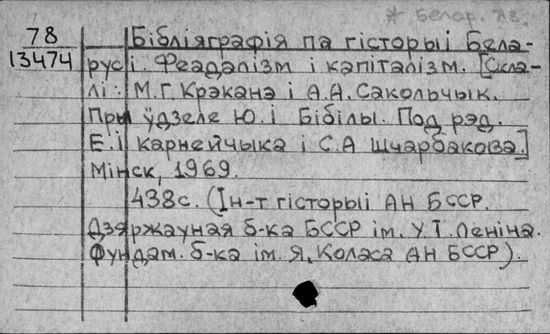 * Белор. яз.
78
13474
Бібліяграфія па гісторыі Бела-
русі. Феадалізм і капіталізм. [Скла-
лі: М.Г. Крэкана і А.А. Сакольчык.
Пры ўдзеле Ю.І Бібілы. Под рэд.
Е.І карнейчыка і С.А Шчарбакова.]
Мінск, 1969.
438с. (Ін-т гісторыі АН БССР.
Дзяржауная б-ка БССР ім. У.І. Леніна.
Фундам. б-ка ім. Я. Коласа АН БССР).